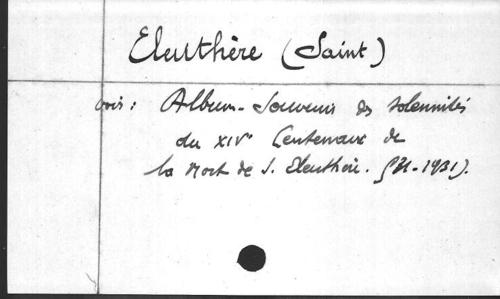 Eleuthère (Saint)
voir: Album-Souvenir des Solennités
du XIVe Centenaire de
la Mort de S. Eleuthère. (531-1931).